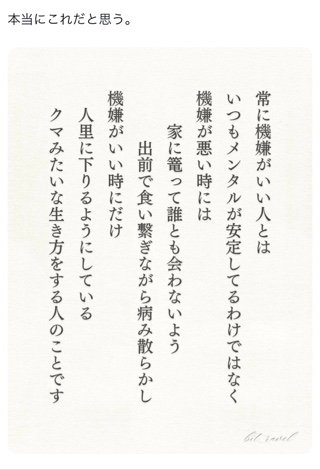 本当にこれだと思う。
常に機嫌がいい人とは
いつもメンタルが安定してるわけではなく
機嫌が悪い時には
家に篭って誰とも会わないよう
出前で食い繋ぎながら病み散らかし
機嫌がいい時にだけ
人里に下りるようにしている
クマみたいな生き方をする人のことです